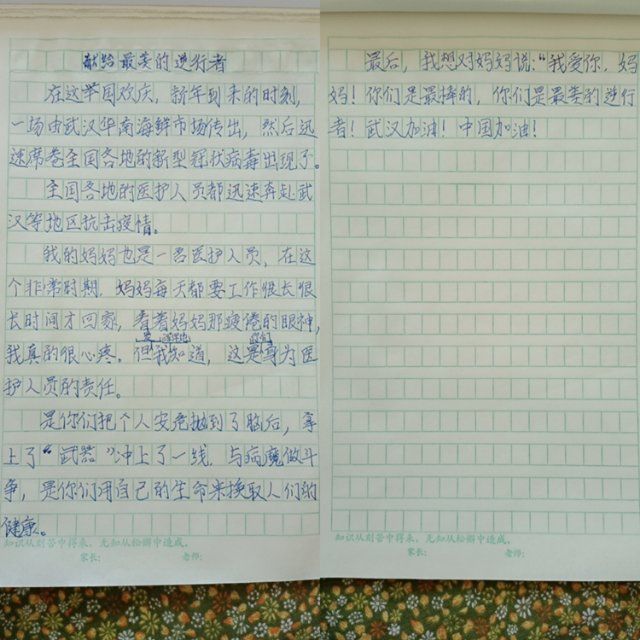 献给最美的逆行者
在这举国欢庆，新年到来的时刻，
一场由武汉华南海鲜市场传出，然后迅
速席卷全国各地的新型冠状病毒出现了。
全国各地的医护人员都迅速奔赴武
汉等地区抗击疫情。
我的妈妈也是一名医护人员，在这
个非常时期，妈妈每天都要工作很长很
长时间才回家，看着妈妈那疲倦的眼神，
我真的很心疼。但我知道，这是身为医
护人员的责任。
是你们把个人安危抛到了脑后，拿
上了“武器”冲上了一线，与病魔做斗
争，是你们用自己的生命来换取人们的
健康。
知识从刻苦中得来，无知从松懈中造成。
家长： 老师：
最后，我想对妈妈说：“我爱你，妈
妈！你们是最棒的，你们是最美的逆行
者！武汉加油！中国加油！
知识从刻苦中得来，无知从松懈中造成。
家长： 老师：